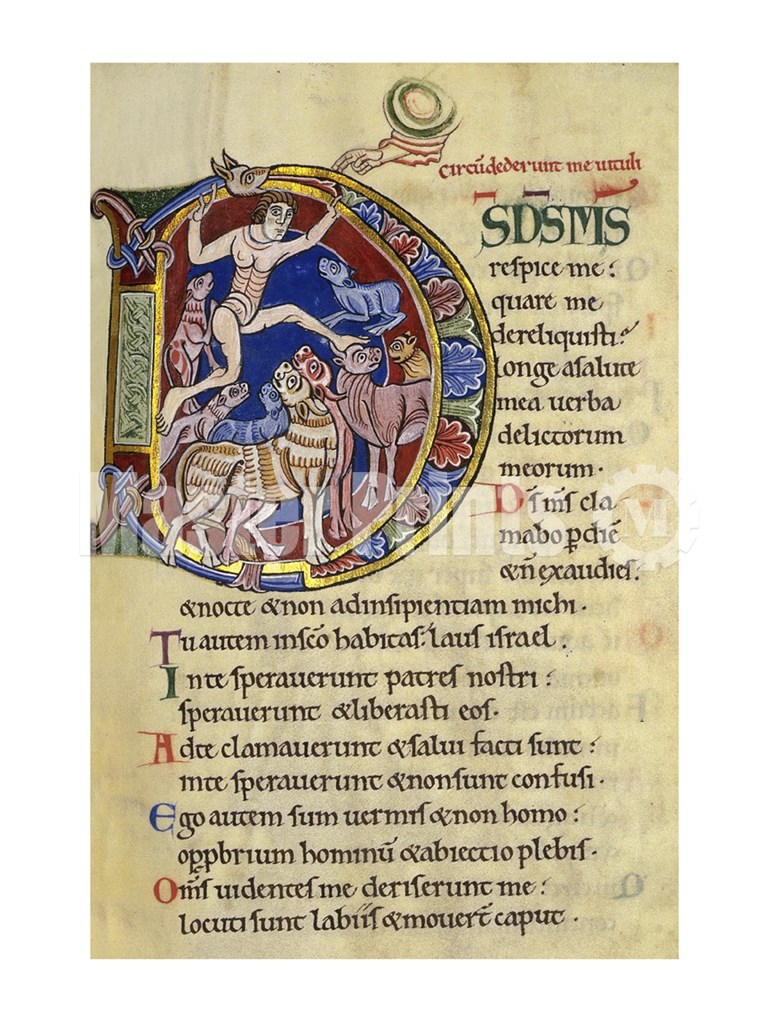 Circūdederunt me uituli
DSDSMS
respice me:
quare me
dereliquisti?
longe a salute
mea uerba
delictorum
meorum.
Ds ms cla
mabo p diē
& ñ exaudies:
& nocte & non ad insipientiam michi.
Tu autem in scō habitas: laus israel.
In te sperauerunt patres nostri:
sperauerunt & liberasti eos.
Ad te clamauerunt & salui facti sunt:
in te sperauerunt & non sunt confusi.
Ego autem sum uermis & non homo:
opprobrium hominū & abiectio plebis.
Oms uidentes me deriserunt me:
locuti sunt labiis & mouerт̄ caput.